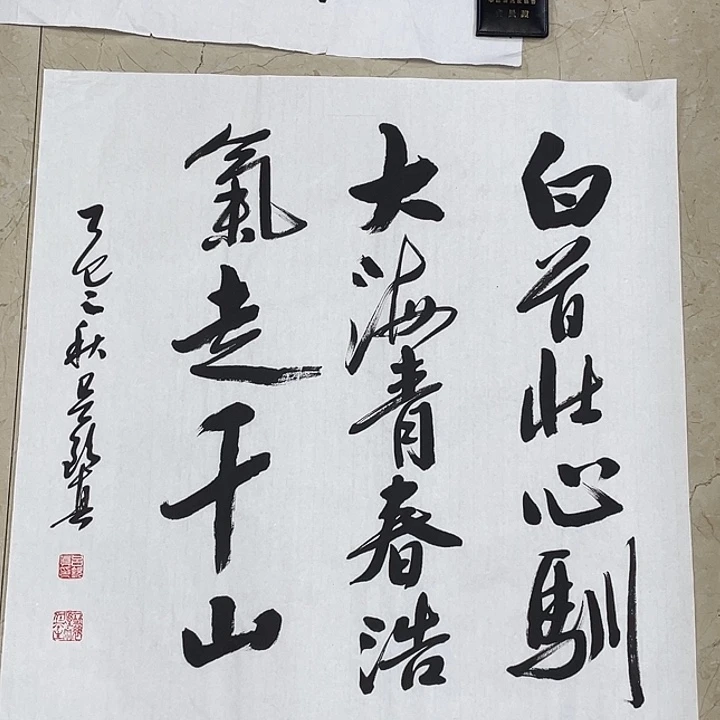 白首壯心馴
大海青春浩
氣走千山
乙巳秋吴